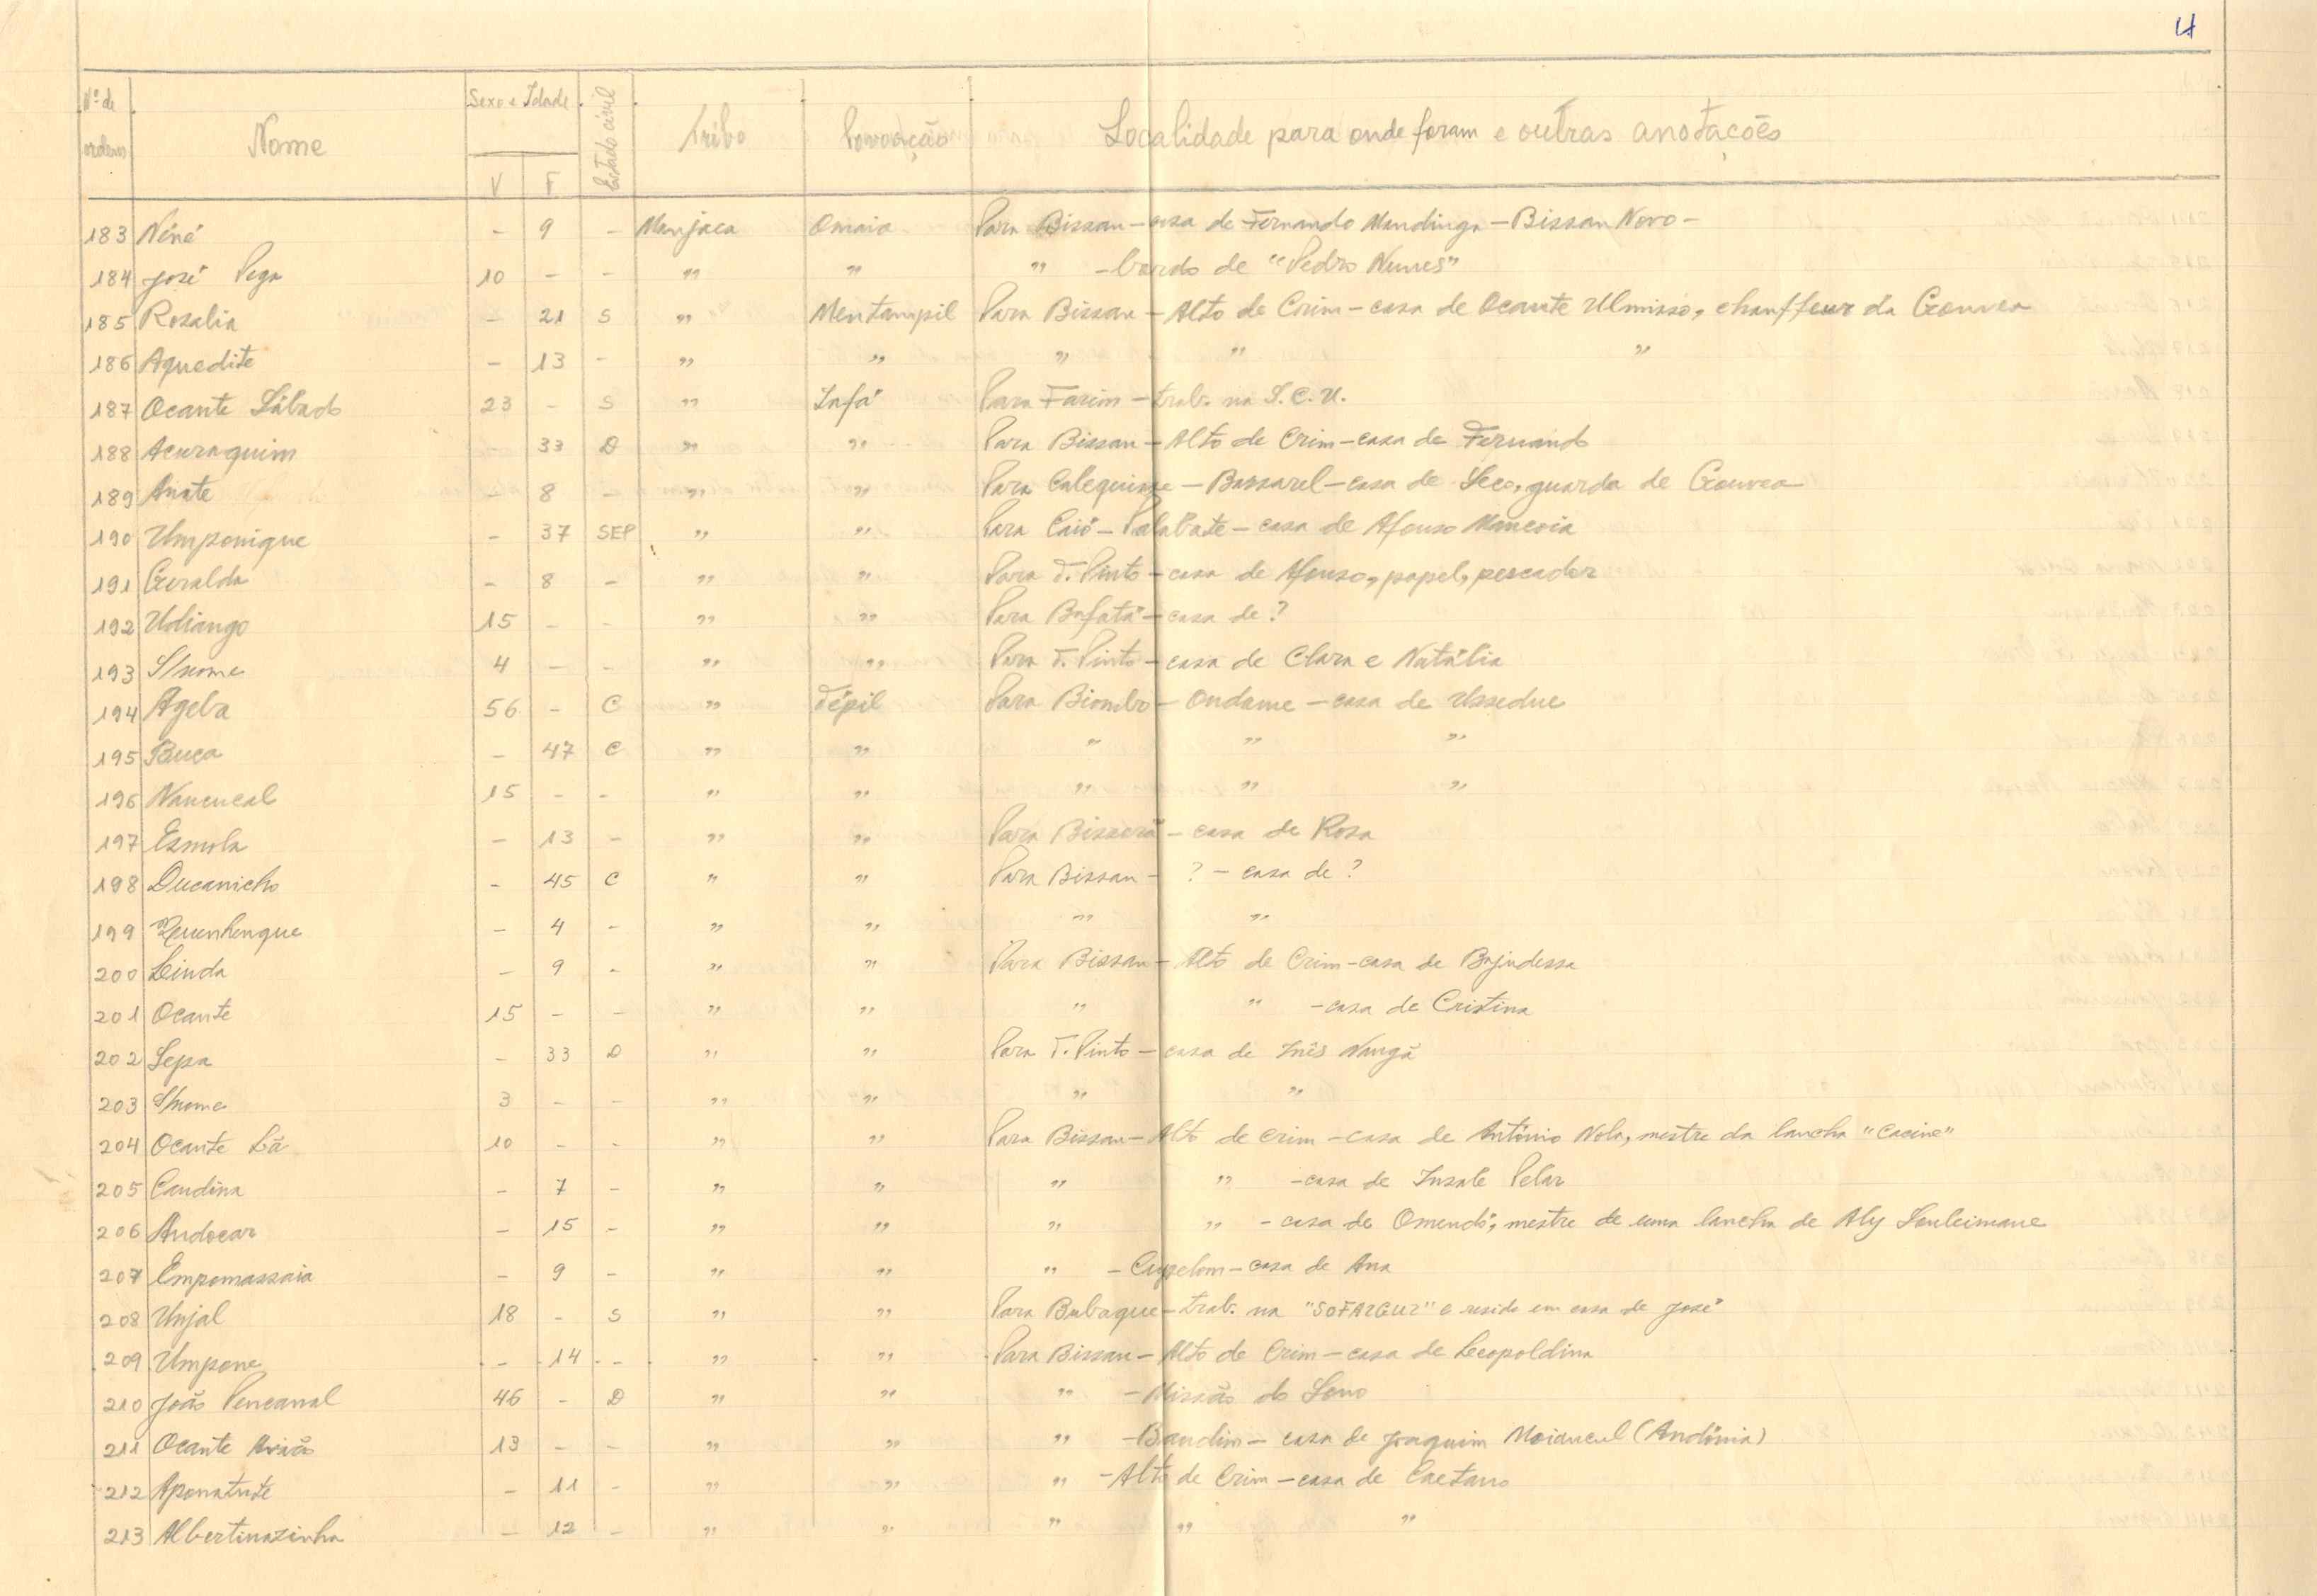 4
Nº de ordem Nome Sexo e Idade Estado civil Tribo Povoação Localidade para onde foram e outras anotações
V F
183 Néné - 9 - Manjaca Omaia Para Bissau - casa de Fernando Mandinga - Bissau Novo -
184 José Pega 10 - - " " " - bordo de "Pedro Nunes"
185 Rosalia - 21 S " Mentampil Para Bissau - Alto de Crim - casa de Ocante Ulmisso, chauffeur da Gouvea
186 Aquedite - 13 - " " " " "
187 Ocante Sábado 23 - S " Infá Para Farim - trab. na S.C.U.
188 Acuraquim - 33 D " " Para Bissau - Alto de Crim - casa de Fernando
189 Anate - 8 - " " Para Calequisse - Bassarel - casa de Seco, guarda de Gouvea
190 Umponique - 37 SEP " " Para Caió - casa de Afonso Mancoia
191 Geralda - 8 - " " Para T. Pinto - casa de Afonso, papel, pescador
192 Udiango 15 - - " " Para Bafatá - casa de ?
193 S/nome 4 - - " " Para T. Pinto - casa de Clara e Natália
194 Ageba 56 - C " Tépil Para Biombo - Ondame - casa de Ussedue
195 Buca - 47 C " " " " "
196 Nancucal 15 - - " " " " "
197 Esmola - 13 - " " Para Bissorã - casa de Rosa
198 Ducanicho - 45 C " " Para Bissau - ? - casa de ?
199 - 4 - " " " "
200 Linda - 9 - " " Para Bissau - Alto de Crim - casa de Bajudessa
201 Ocante 15 - - " " " " - casa de Cristina
202 Sepa - 33 D " " Para T. Pinto - casa de Inês Nangã
203 S/nome 3 - - " " " "
204 Ocante Lã 10 - - " " Para Bissau - Alto de Crim - casa de António Nola, mestre da lancha "Cacine"
205 Candina - 7 - " " " " - casa de Insale Pelar
206 Andocar - 15 - " " " " - casa de Omendó, mestre de uma lancha de Aly Souleimane
207 Empomassaia - 9 - " " " - Cupelom - casa de Ana
208 Unjal 18 - S " " Para Bubaque - trab. na e reside em casa de José
209 Umpone - 14 - " " Para Bissau - Alto de Crim - casa de Leopoldina
210 João Pencanal 46 - D " " " - Missão do Sono
211 Ocante 13 - - " " " - Bandim - casa de Joaquim (Andónia)
212 Aponatute - 11 - " " " - Alto de Crim - casa de Caetano
213 Albertinazinha - 12 - " " " " "